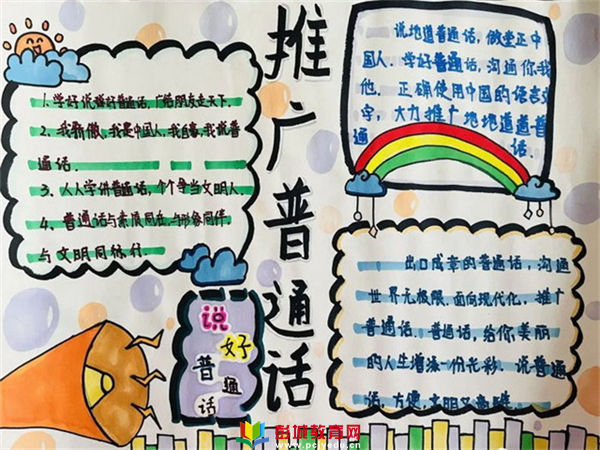 推广普通话
1、学好说好普通话,广结朋友走天下.
2、我骄傲,我是中国人,我自豪,我说普
通话.
3、人人学讲普通话,个个争当文明人.
4、普通话与素质同在,与形象同伴,
与文明同行.
说好
普通
话
说地道普通话,做堂正中
国人.学好普通话,沟通你我
他.正确使用中国的语言文
字,大力推广地地道道普
通话.
出口成章的普通话,沟通
世界无极限.面向现代化,推广
普通话.普通话,给你美丽
的人生增添一份光彩.说普通
话,方便,文明又
彭城教育网
www.pcjyedu.cn